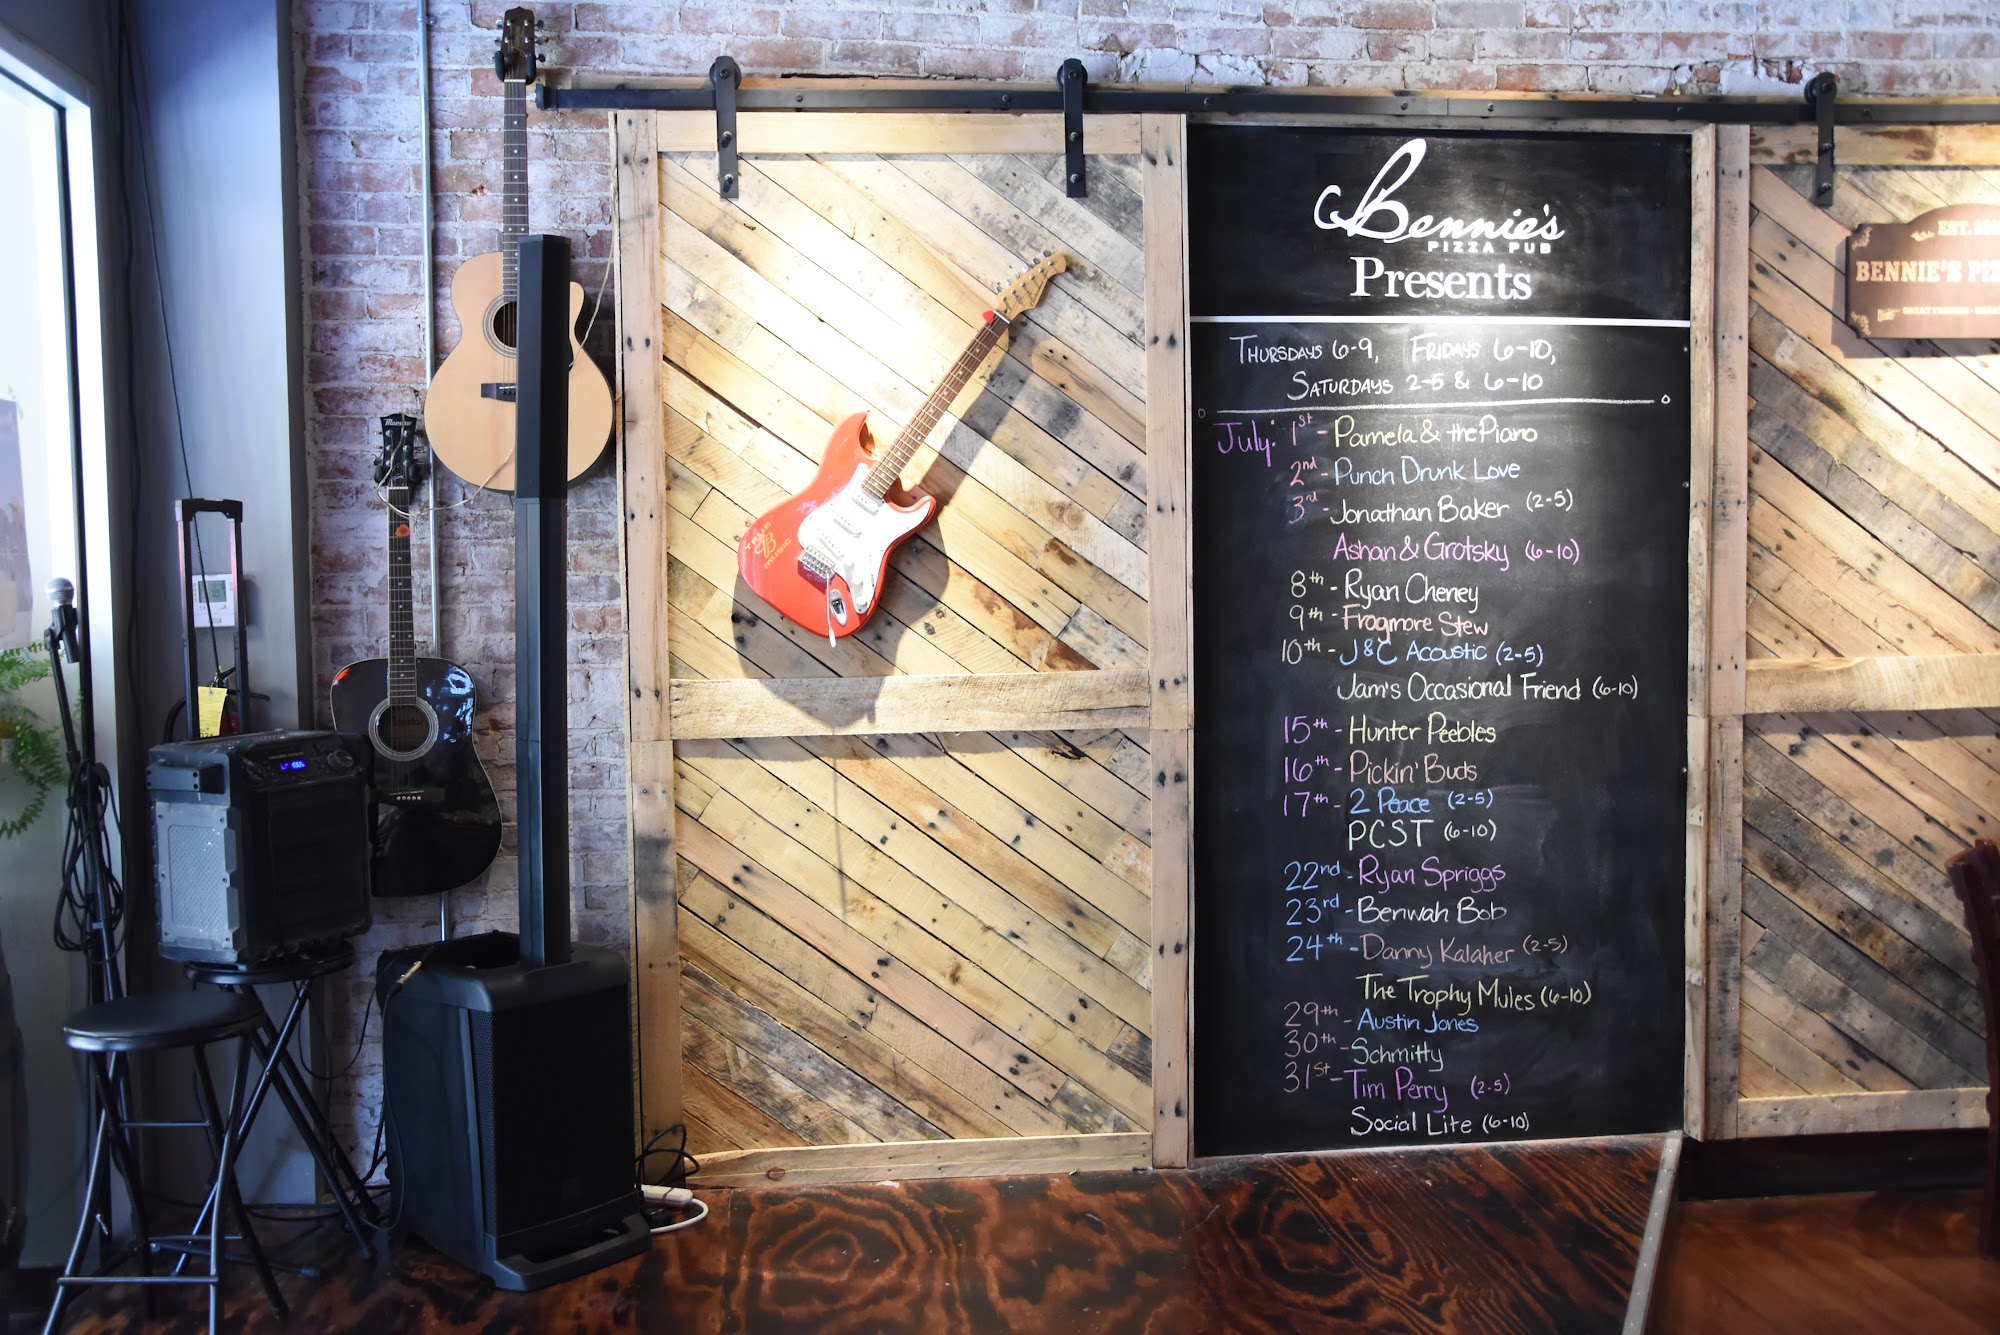 Bennie's
PIZZA PUB
Presents
THURSDAYS 6-9, FRIDAYS 6-10,
SATURDAYS 2-5 & 6-10
July: 1st - Pamela & the Piano
2nd - Punch Drunk Love
3rd - Jonathan Baker (2-5)
Ashan & Grotsky (6-10)
8th - Ryan Cheney
9th - Frogmore Stew
10th - J&C Acoustic (2-5)
Jam's Occasional Friend (6-10)
15th - Hunter Peebles
16th - Pickin' Buds
17th - 2 Peace (2-5)
PCST (6-10)
22nd - Ryan Spriggs
23rd - Benwah Bob
24th - Danny Kalaher (2-5)
The Trophy Mules (6-10)
29th - Austin Jones
30th - Schmitty
31st - Tim Perry (2-5)
Social Lite (6-10)
EST.
BENNIE'S
TRUE
B
MUSIC
Maestro